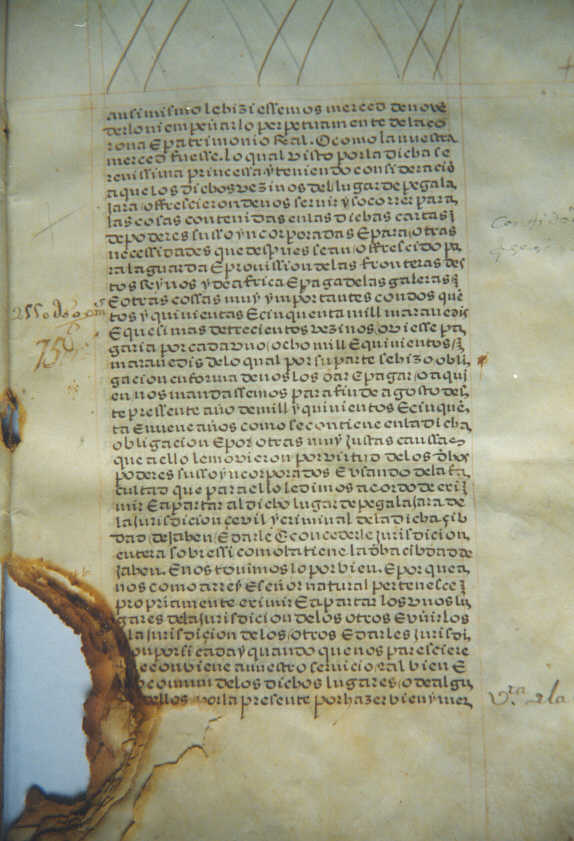 ansimismo le hiziessemos merced de no ve
derlo ni empeñarlo perpetuamente de la co
rona E patrimonio Real. O como la nuestra
merced fuesse. lo qual visto por la dicha se
renissima princessa y teniendo consideracio
a que los dichos vezinos del lugar de pegala
jara offrescieron de nos servir y socorrer para
las cosas contenidas en las dichas cartas
de poderes susso yncorporadas E para otras
necessidades que despues se an offrescido pa
ra la guarda E provission de las fronteras des
tos reynos y de africa E paga de las galeras
E otras cossas muy ymportantes con dos que
tos y quinientas E cinquenta mill maravedis
E que si mas de trecientos vezinos oviesse pa
garia por cada vno ocho mill E quinientos
maravedis de lo qual por su parte se hizo obli
gacion en forma de nos los dar E pagar o a qui
en nos mandassemos para fin de agosto des
te pressente año de mill y quinientos E cinque
ta E nueve años como se contiene en la dicha
obligacion E por otras muy justas caussas
que a ello le movieron por virtud de los dhos
poderes susso yncorporados E vsando de la fa
cultad que para ello le dimos acordo de exi
mir E apartar al dicho lugar de pegalajara de
la jurisdicion cevil y criminal de la dicha cib
dad de Jahen E darle E concederle jurisdicion
entera sobre ssi como la tiene la dha cibdad de
Jahen. E nos tovimos lo por bien. E por que a
nos como a rrey E señor natural pertenesce
propriamente eximir E apartar los vnos lu
gares de la jurisdicion de los otros E vnirlos
la jurisdiçion de los otros E darles jurisdi
on por si cada y quando que nos paresciere
e conbiene a nuestro servicio E al bien E
comun de los dichos lugares o de algu
dellos por la presente por hazer bien y mer